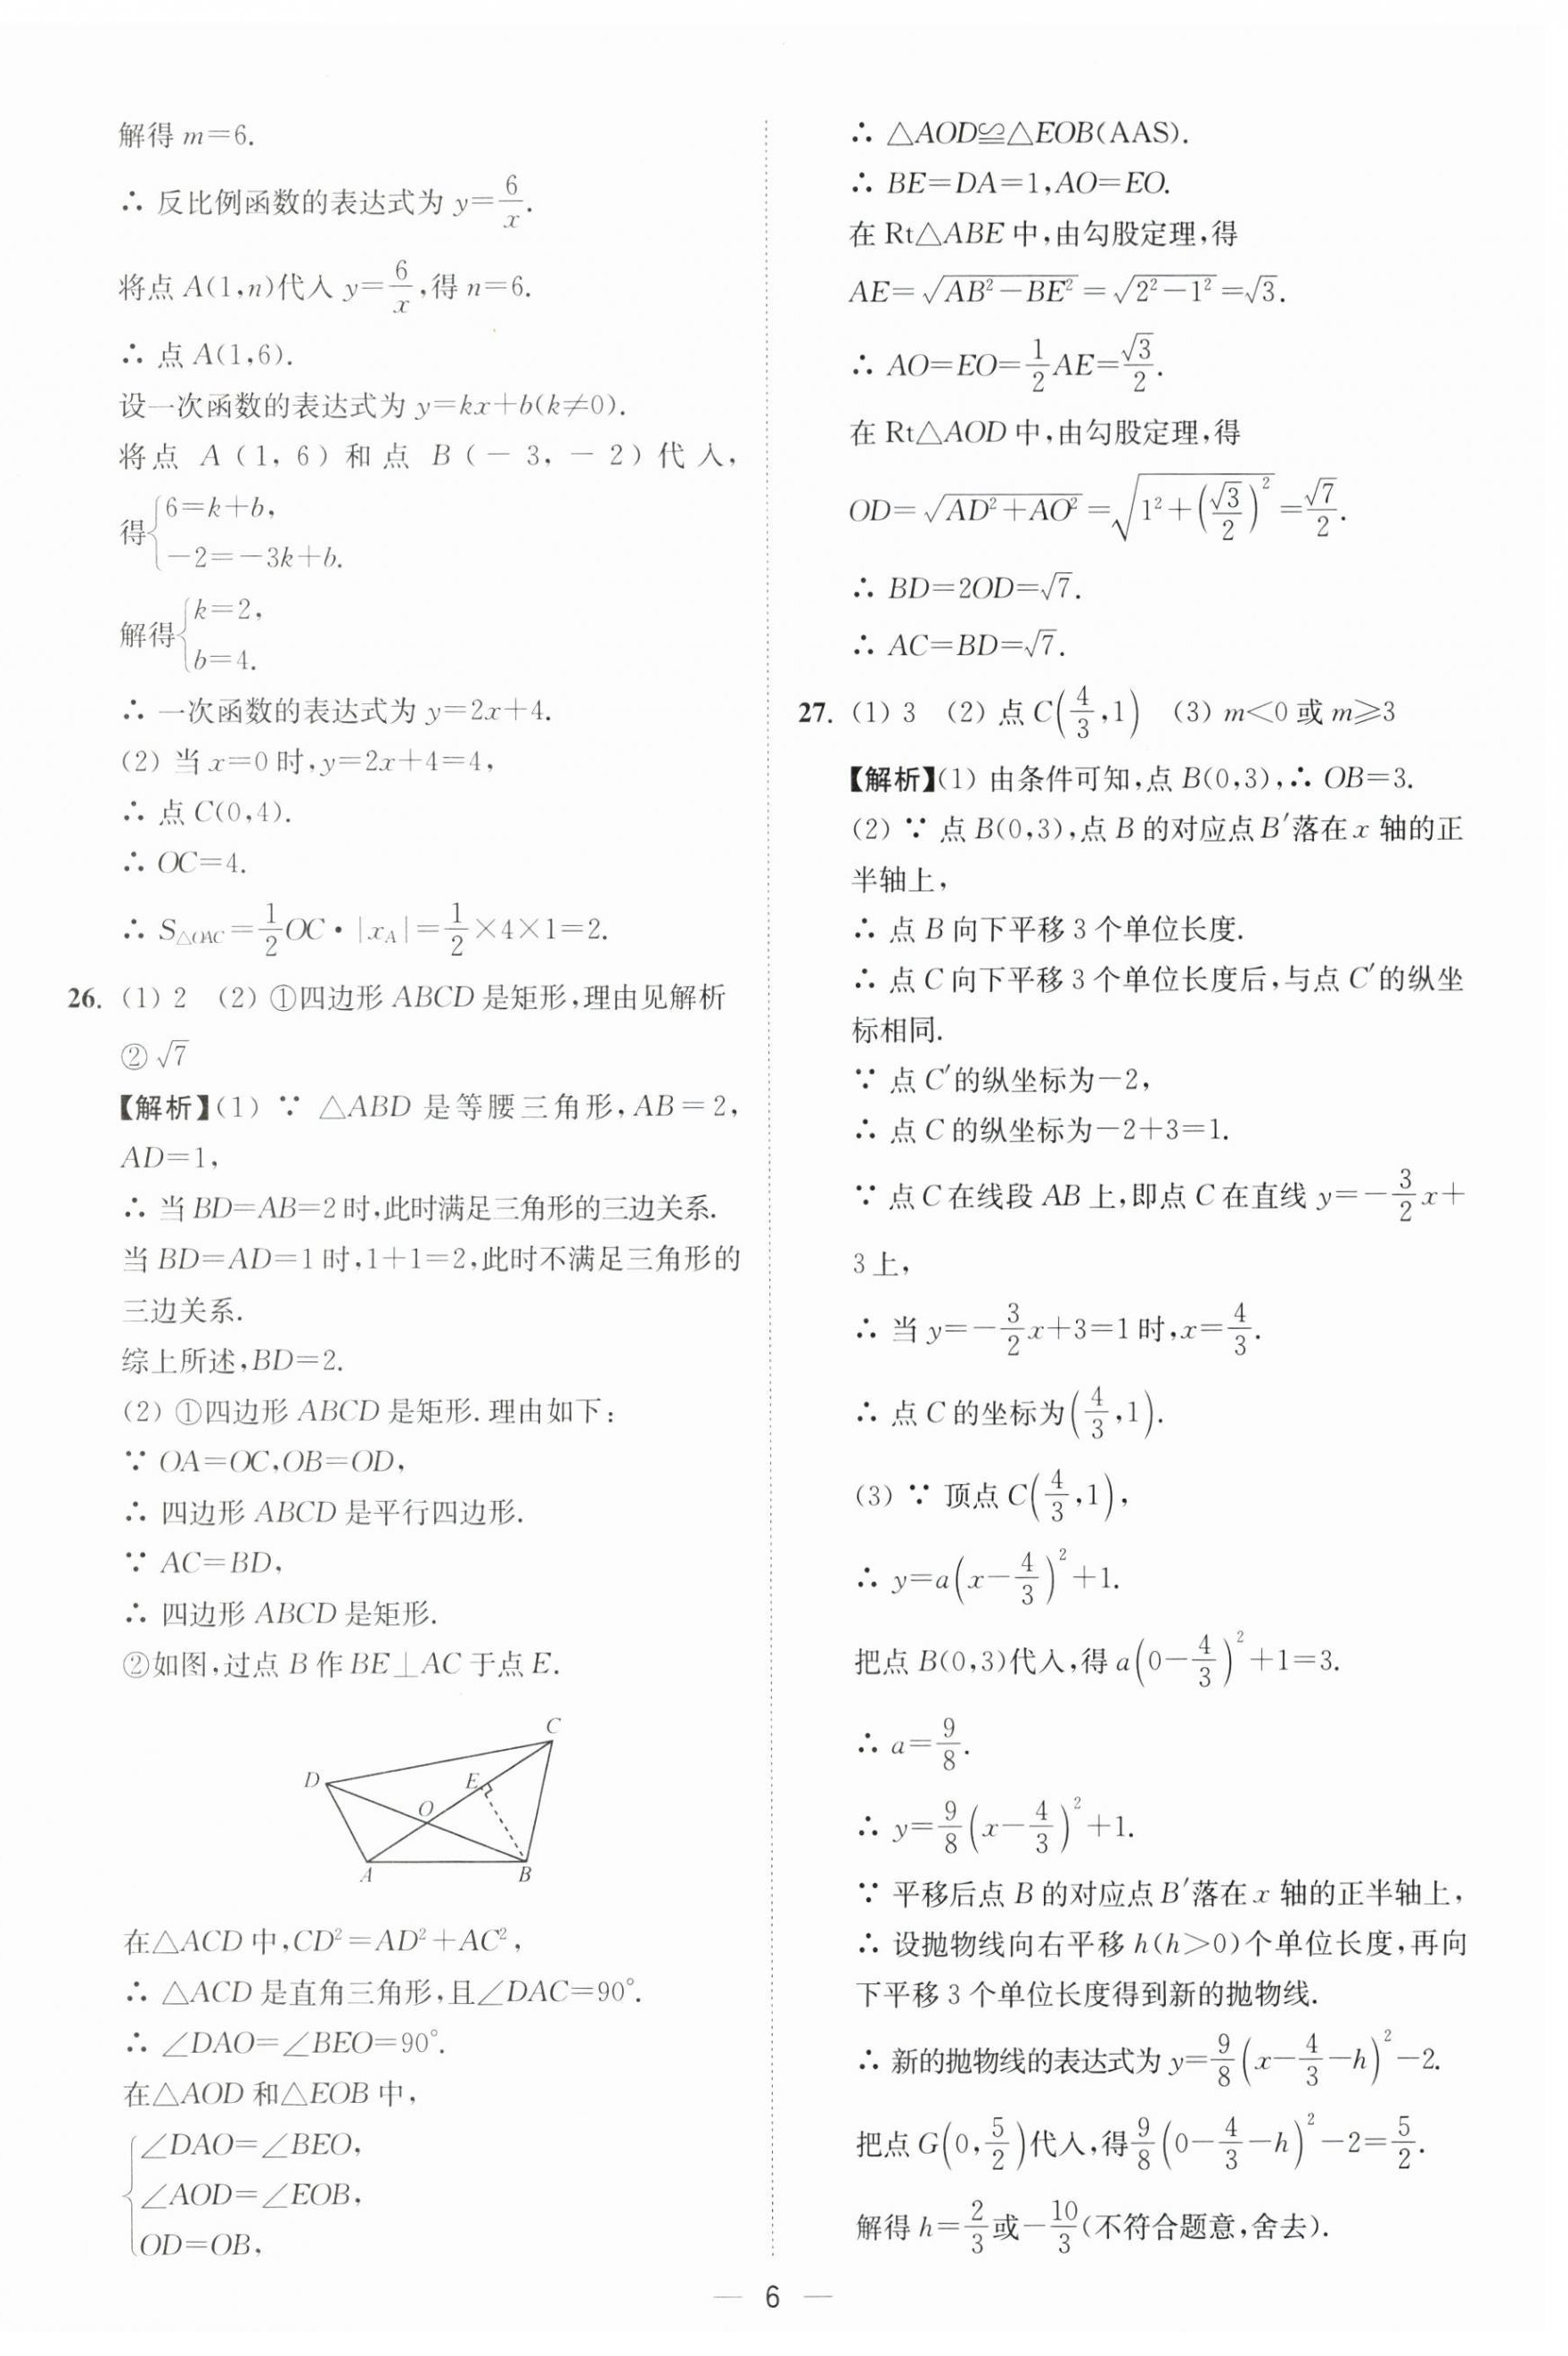 解得 m=6.
∴ 反比例函数的表达式为 y=6/x.
将点 A(1,n)代入 y=6/x,得 n=6.
∴ 点 A(1,6).
设一次函数的表达式为 y=kx+b(k≠0).
将点 A(1,6)和点 B(-3,-2)代入,
得{6=k+b,
-2=-3k+b.
解得{k=2,
b=4.
∴ 一次函数的表达式为 y=2x+4.
(2) 当 x=0 时,y=2x+4=4,
∴ 点 C(0,4).
∴ OC=4.
∴ S△OAC=1/2OC·|xA|=1/2×4×1=2.
26. (1) 2 (2) ①四边形 ABCD 是矩形,理由见解析
② √7
【解析】(1) ∵ △ABD 是等腰三角形,AB=2,
AD=1,
∴ 当 BD=AB=2 时,此时满足三角形的三边关系.
当 BD=AD=1 时,1+1=2,此时不满足三角形的
三边关系.
综上所述,BD=2.
(2) ①四边形 ABCD 是矩形.理由如下:
∵ OA=OC,OB=OD,
∴ 四边形 ABCD 是平行四边形.
∵ AC=BD,
∴ 四边形 ABCD 是矩形.
②如图,过点 B 作 BE⊥AC 于点 E.
C
D
E
O
A
B
在△ACD 中,CD²=AD²+AC²,
∴ △ACD 是直角三角形,且∠DAC=90°.
∴ ∠DAO=∠BEO=90°.
在△AOD 和△EOB 中,
{∠DAO=∠BEO,
∠AOD=∠EOB,
OD=OB,
∴ △AOD≌△EOB(AAS).
∴ BE=DA=1,AO=EO.
在 Rt△ABE 中,由勾股定理,得
AE=√(AB²-BE²)=√(2²-1²)=√3.
∴ AO=EO=1/2AE=√3/2.
在 Rt△AOD 中,由勾股定理,得
OD=√(AD²+AO²)=√(1²+(√3/2)²)=√7/2.
∴ BD=2OD=√7.
∴ AC=BD=√7.
27. (1) 3 (2) 点 C(4/3,1) (3) m<0 或 m≥3
【解析】(1) 由条件可知,点 B(0,3),∴ OB=3.
(2) ∵ 点 B(0,3),点 B 的对应点 B′落在 x 轴的正
半轴上,
∴ 点 B 向下平移 3 个单位长度.
∴ 点 C 向下平移 3 个单位长度后,与点 C′的纵坐
标相同.
∵ 点 C′的纵坐标为-2,
∴ 点 C 的纵坐标为-2+3=1.
∵ 点 C 在线段 AB 上,即点 C 在直线 y=-3/2x+
3 上,
∴ 当 y=-3/2x+3=1 时,x=4/3.
∴ 点 C 的坐标为(4/3,1).
(3) ∵ 顶点 C(4/3,1),
∴ y=a(x-4/3)²+1.
把点 B(0,3)代入,得 a(0-4/3)²+1=3.
∴ a=9/8.
∴ y=9/8(x-4/3)²+1.
∵ 平移后点 B 的对应点 B′落在 x 轴的正半轴上,
∴ 设抛物线向右平移 h(h>0)个单位长度,再向
下平移 3 个单位长度得到新的抛物线.
∴ 新的抛物线的表达式为 y=9/8(x-4/3-h)²-2.
把点 G(0,5/2)代入,得9/8(0-4/3-h)²-2=5/2.
解得 h=2/3或-10/3(不符合题意,舍去).
— 6 —